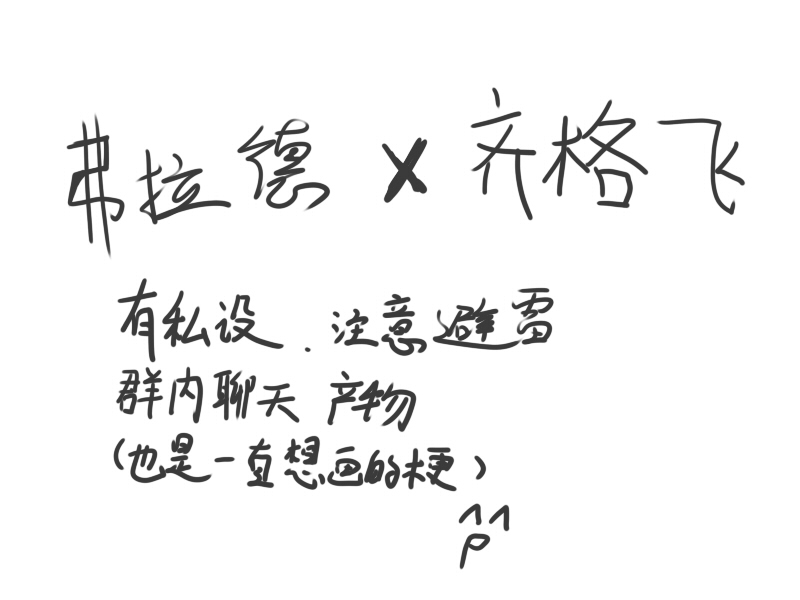 弗拉德 X 齐格飞
有私设．注意避雷
群内聊天 产物
(也是一直想画的梗)
^^
p